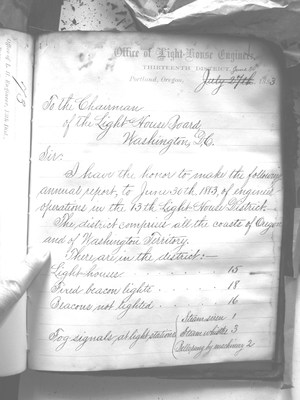 Office of Light-House Engineer,
THIRTEENTH DISTRICT,
Portland, Oregon,
To the Chairman
of the Light-House Board,
Washington, D.C.
Sir:
I have the honor to make the following
annual report, to June 30th 1883, of engineer
operations in the 13th Light-House District.
The district comprises all the coasts of Oregon
and of Washington Territory.
There are in the district:—
Light-houses . . . . . 15
Fixed beacon lights . . . . 18
Beacons not lighted . . . . 16
Steam siren 1
Fog signals, at light stations Steam whistle 3
Bell rung by machinery 2